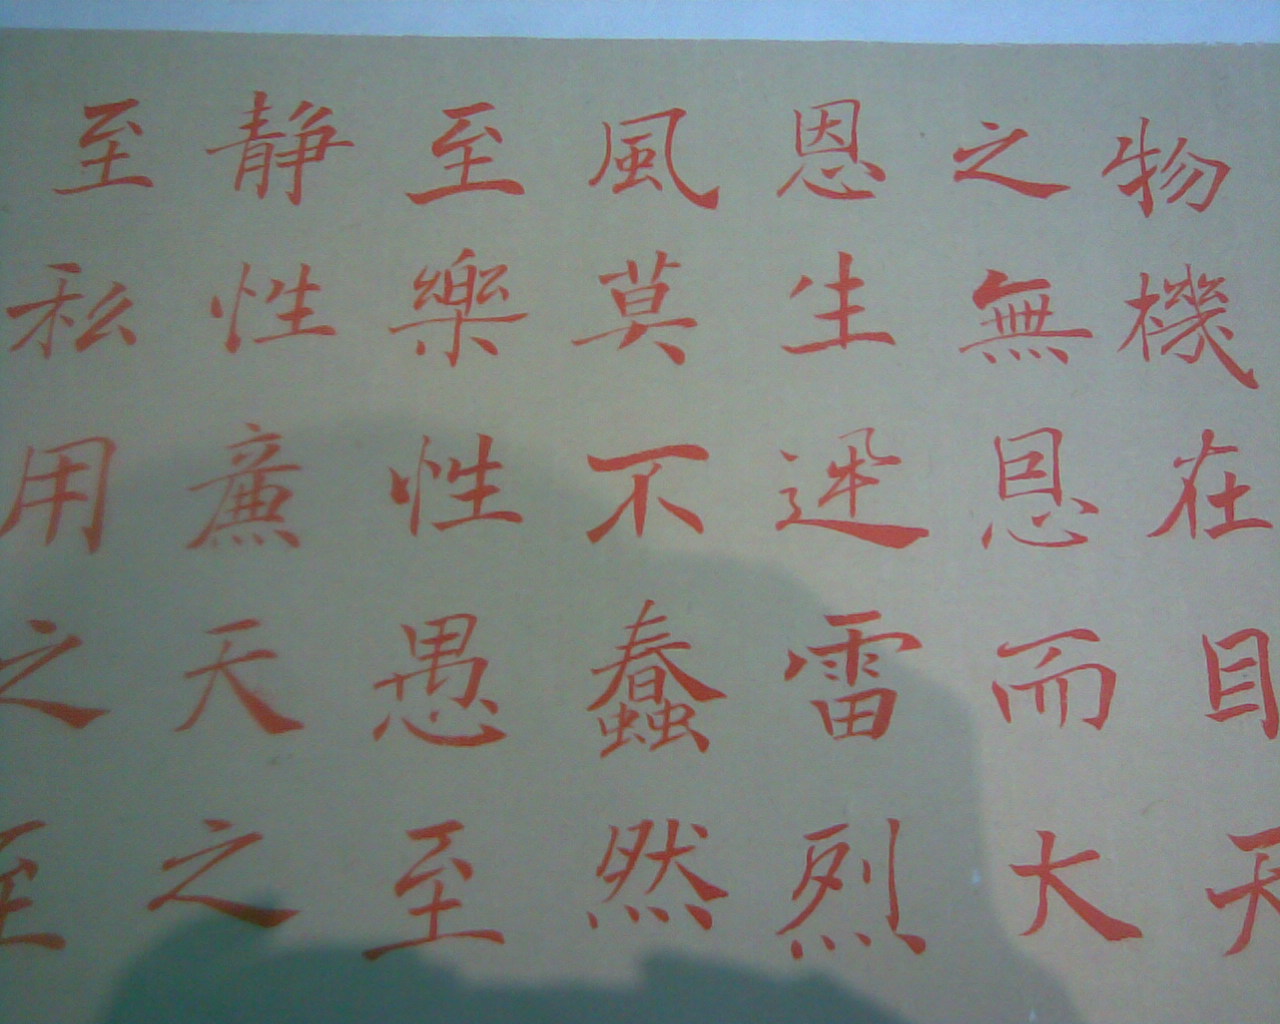 物機在目天
之無恩而大
恩生迅雷烈
風莫不蠢然
至樂性愚至
静性廉天之
至私用之至